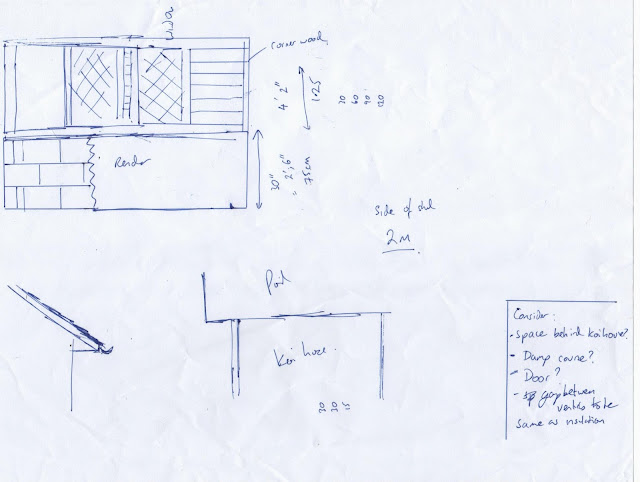 corner wood
4' 2"
1.25
30
60
90
120
Render
30"
= 2', 6"
75cm
side of
2M
Koi house
30
30
15
Consider:
- Space behind Koi house?
- Damp course?
- Door?
- gap between
verticals to be
same as insulation